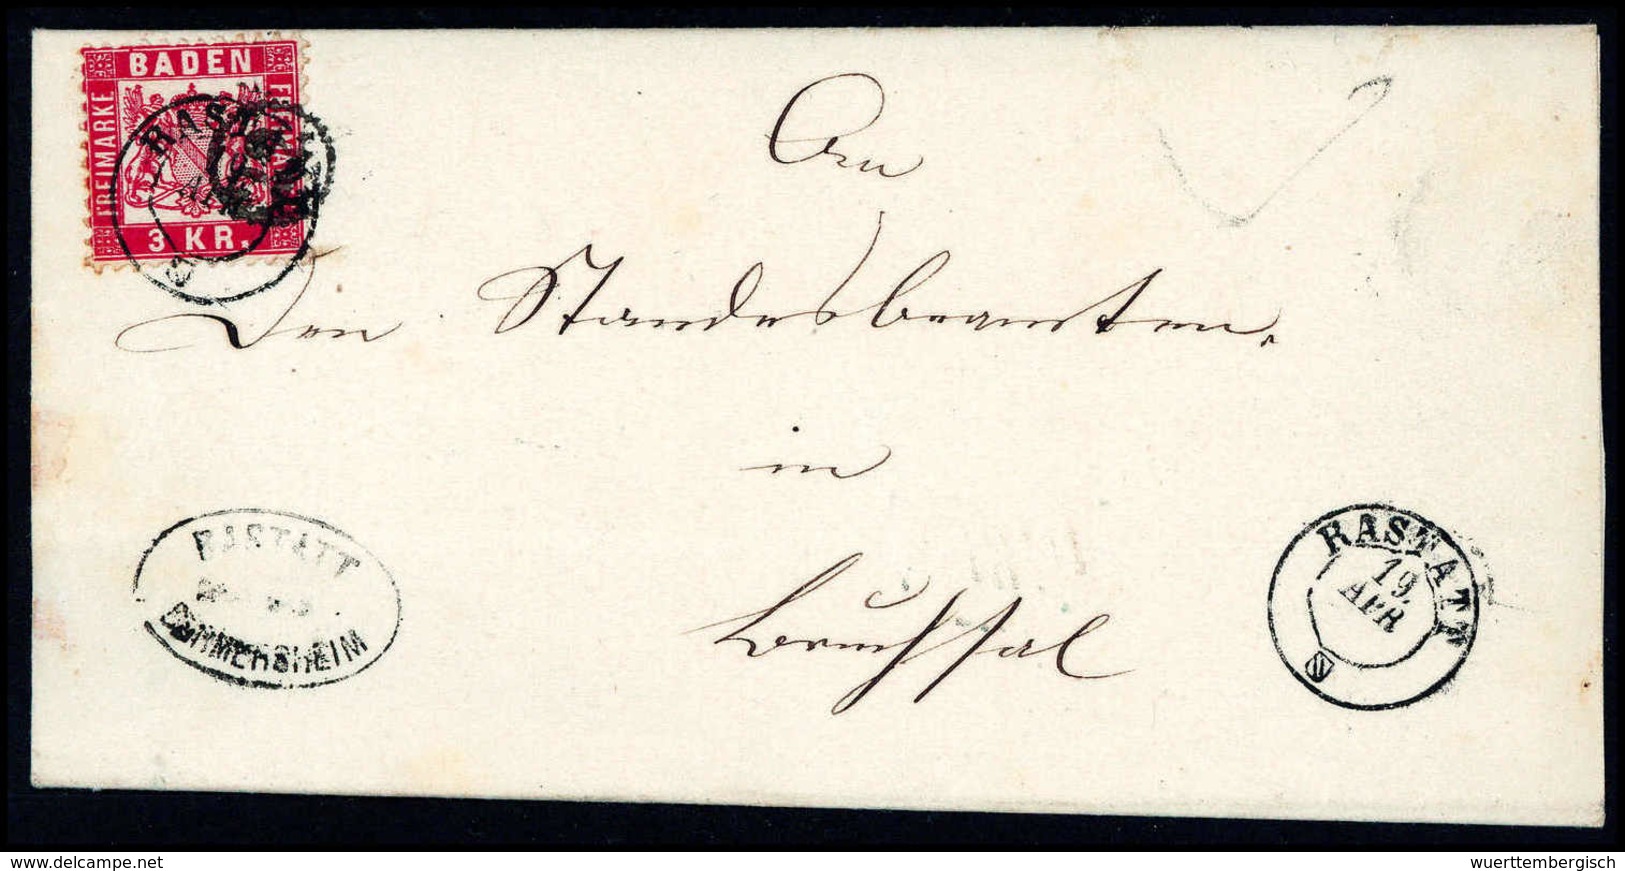 BADEN
FREIMARKE
FREIMARKE
3 KR.
RASTATT
APR
An
Den Standesbeamten
in
Bruchsal
RASTATT
GERMERSHEIM
RASTATT
19.
APR
www.delcampe.net
wuerttembergisch